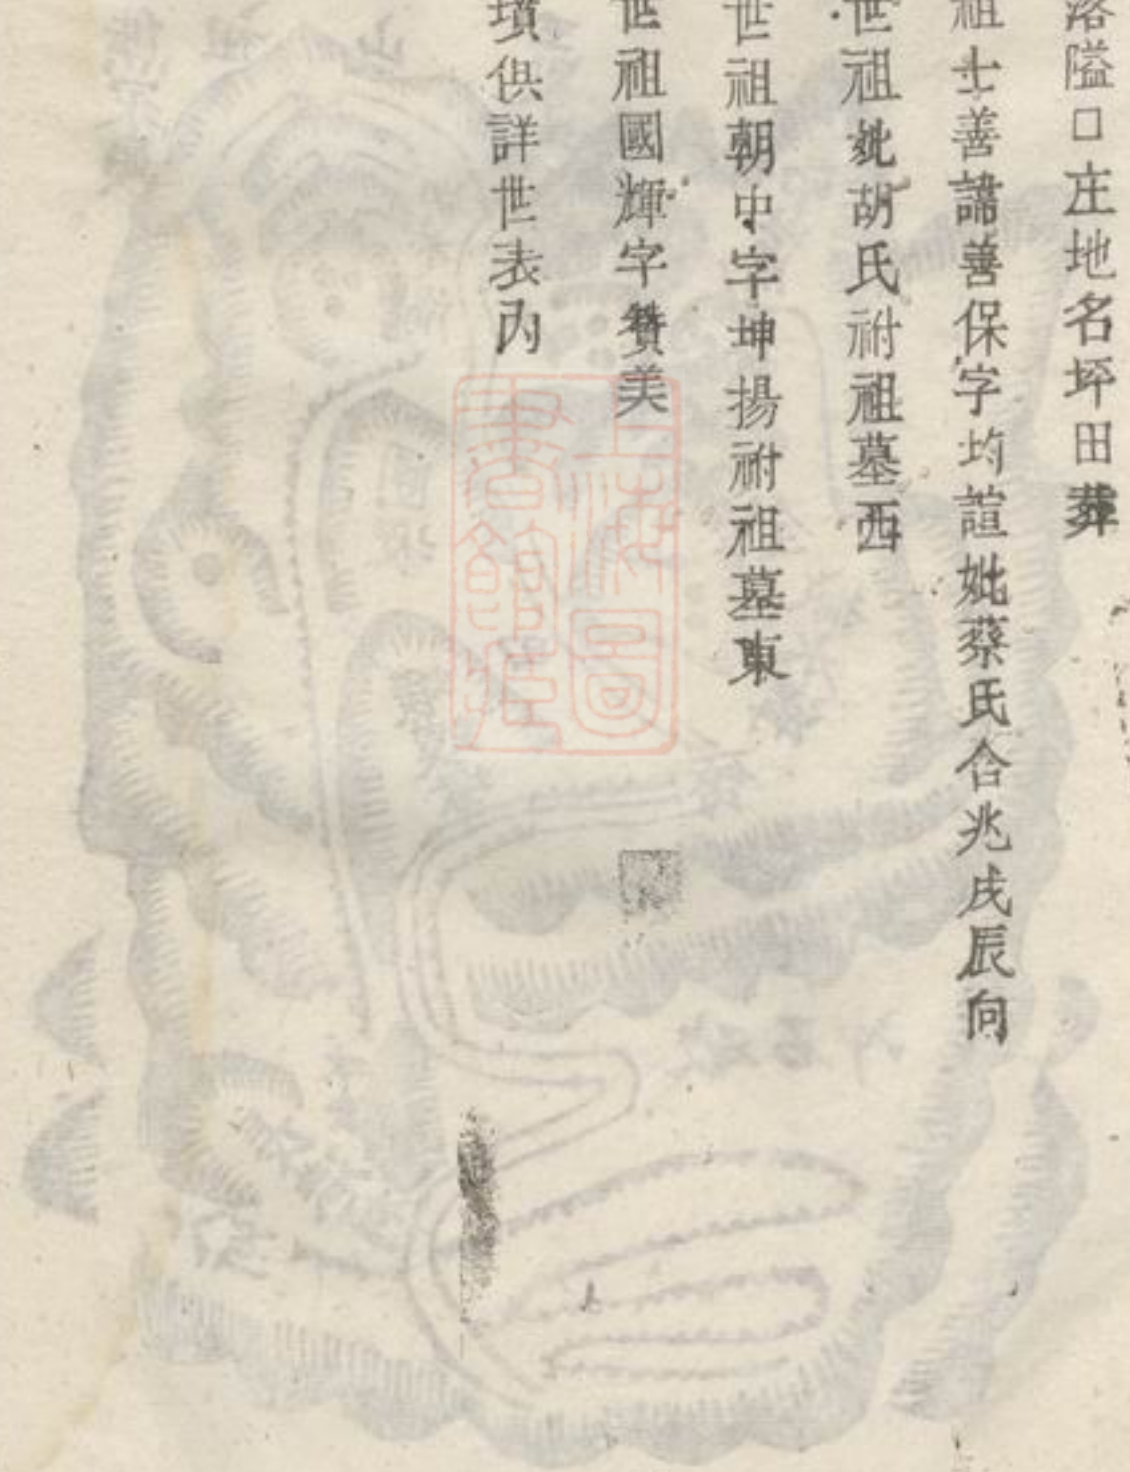 落隘口庄地名坪田葬
祖士善諱善保字均諠妣蔡氏合兆戌辰向
世祖妣胡氏祔祖墓西
世祖朝中字坤揚祔祖墓東
世祖國輝字贊美
墳俱詳世表內
上海圖書館藏